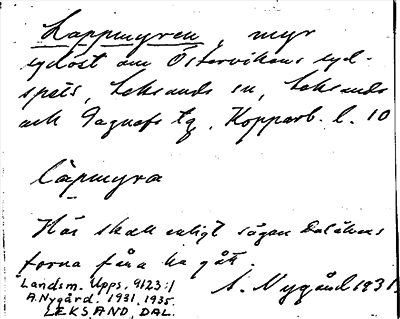 Lappmyren, myr
sydost om Östervikens syd-
spets, Leksands sn, Leksands
och Gagnefs tg, Kopparb. l. 10
låpmyra
Här skall enligt sägen Dalälvens
forna fåra ha gått.
A. Nygård 1931.
Landsm. Upps. 9123:1
A. Nygård. 1931, 1935.
LEKSAND, DAL.